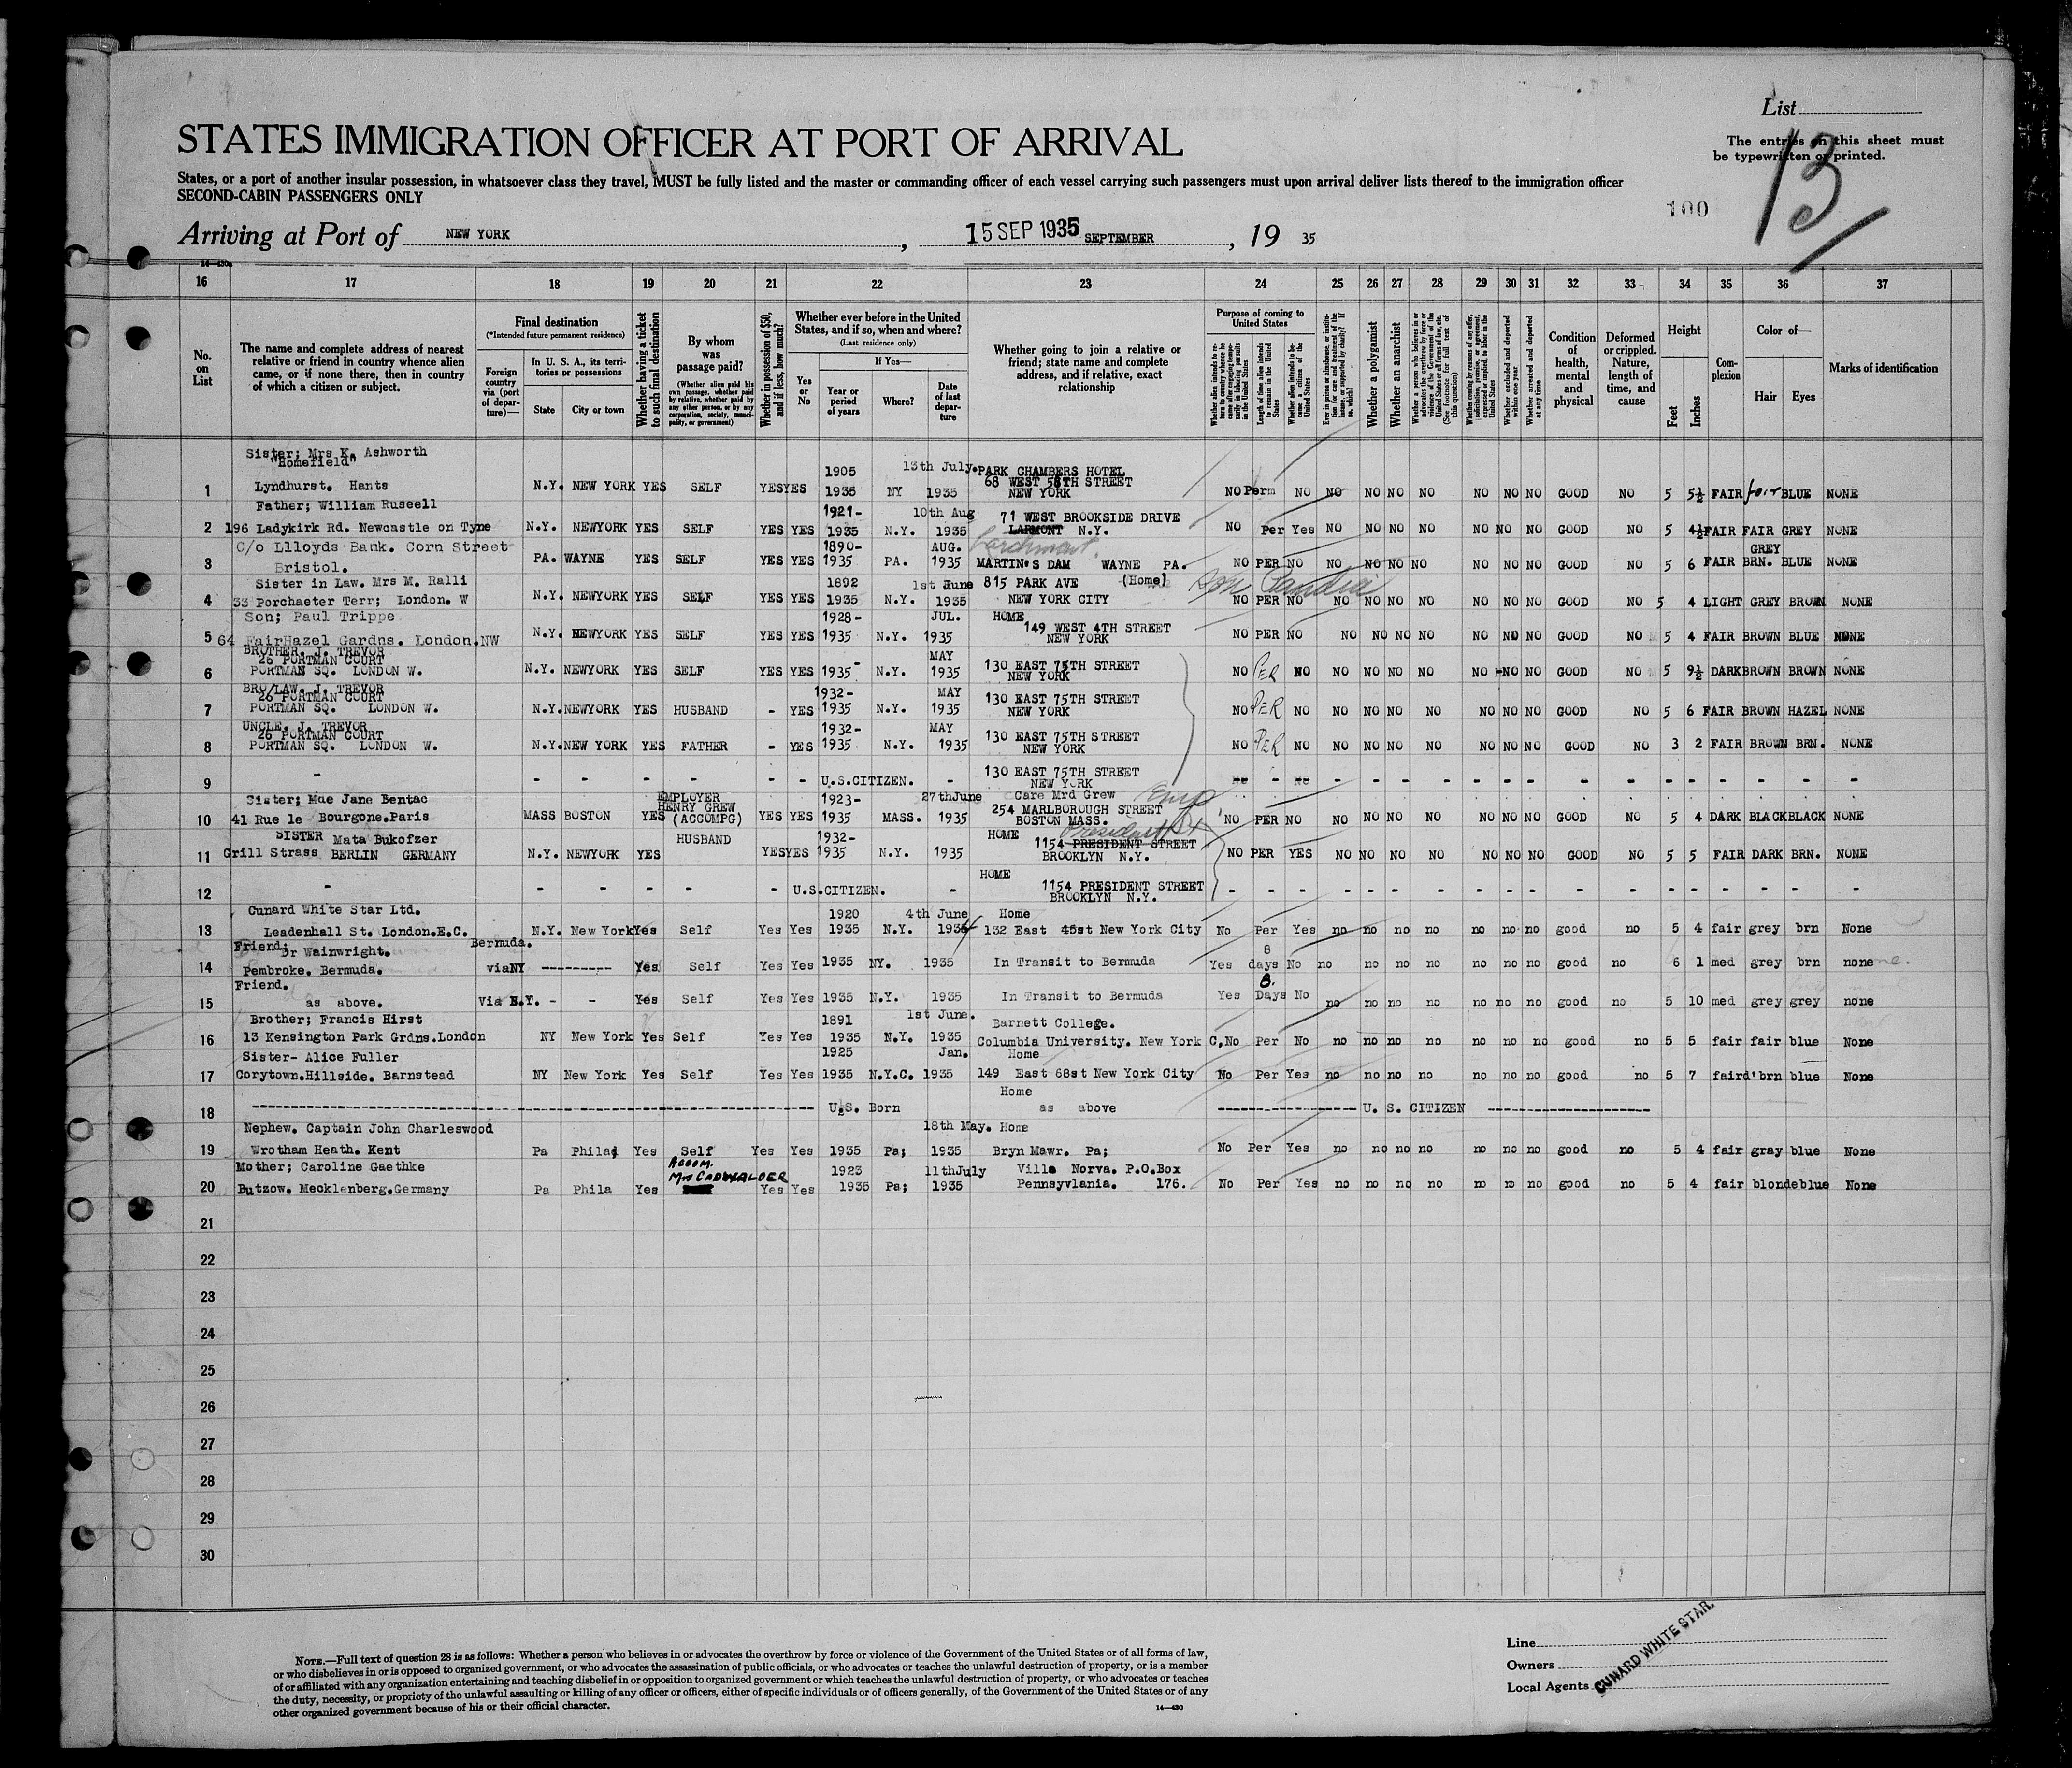 List
The entries on this sheet must
be typewritten or printed.
13
100
STATES IMMIGRATION OFFICER AT PORT OF ARRIVAL
States, or a port of another insular possession, in whatsoever class they travel, MUST be fully listed and the master or commanding officer of each vessel carrying such passengers must upon arrival deliver lists thereof to the immigration officer
SECOND-CABIN PASSENGERS ONLY
Arriving at Port of NEW YORK , 15 SEP 1935 SEPTEMBER , 19 35
16 17 18 19 20 21 22 23 24 25 26 27 28 29 30 31 32 33 34 35 36 37
No. on List
The name and complete address of nearest relative or friend in country whence alien came, or if none there, then in country of which a citizen or subject.
Final destination
(*Intended future permanent residence)
Foreign country via (port of departure)—
In U. S. A., its territories or possessions
State City or town
Whether having a ticket to such final destination
By whom was passage paid?
(Whether alien paid his own passage, whether paid by relative, whether paid by any other person, or by any corporation, society, municipality, or government)
Whether in possession of $50, and if less, how much?
Whether ever before in the United States, and if so, when and where?
(Last residence only)
Yes or No
If Yes—
Year or period of years Where? Date of last departure
Whether going to join a relative or friend; state name and complete address, and if relative, exact relationship
Purpose of coming to United States
Length of time alien intends to remain in the United States
Whether alien intends to become a citizen of the United States
Whether a polygamist
Whether an anarchist
Whether excluded and deported within one year
Whether arrested and deported at any time
Condition of health, mental and physical
Deformed or crippled. Nature, length of time, and cause
Height
Feet Inches
Complexion
Color of—
Hair Eyes
Marks of identification
Sister; Mrs K. Ashworth
"Homefield" 1905 13th July. PARK CHAMBERS HOTEL
68 WEST 58TH STREET
1 Lyndhurst. Hants N.Y. NEW YORK YES SELF YES YES 1935 NY 1935 NEW YORK NO Perm NO NO NO NO NO NO NO NO GOOD NO 5 5½ FAIR fair BLUE NONE
Father; William Russell 1921- 10th Aug 71 WEST BROOKSIDE DRIVE
2 196 Ladykirk Rd. Newcastle on Tyne N.Y. NEWYORK YES SELF YES YES 1935 N.Y. 1935 LARMONT N.Y. NO Per Yes NO NO NO NO NO NO NO GOOD NO 5 4½ FAIR FAIR GREY NONE
Larchmont.
C/o Llloyds Bank. Corn Street 1890- AUG. GREY
3 Bristol. PA. WAYNE YES SELF YES YES 1935 PA. 1935 MARTIN'S DAM WAYNE PA. NO PER NO NO NO NO NO NO NO NO GOOD NO 5 6 FAIR BRN. BLUE NONE
Sister in Law. Mrs M. Ralli 1892 1st June 815 PARK AVE (Home)
4 33 Porchaeter Terr; London. W N.Y. NEWYORK YES SELF YES YES 1935 N.Y. 1935 NEW YORK CITY NO PER NO NO NO NO NO NO NO NO GOOD NO 5 4 LIGHT GREY BROWN NONE
Son; Paul Trippe 1928- JUL. HOME
149 WEST 4TH STREET
5 64 FairHazel Gardns. London.NW N.Y. NEWYORK YES SELF YES YES 1935 N.Y. 1935 NEW YORK NO PER NO NO NO NO NO NO NO NO GOOD NO 5 4 FAIR BROWN BLUE NONE
BROTHER. J. TREVOR MAY
26 PORTMAN COURT 130 EAST 75TH STREET
6 PORTMAN SQ. LONDON W. N.Y. NEWYORK YES SELF YES YES 1935- N.Y. 1935 NEW YORK NO PER NO NO NO NO NO NO NO NO GOOD NO 5 9½ DARK BROWN BROWN NONE
BRO/LAW. J. TREVOR 1932- MAY
26 PORTMAN COURT 130 EAST 75TH STREET
7 PORTMAN SQ. LONDON W. N.Y. NEWYORK YES HUSBAND - YES 1935 N.Y. 1935 NEW YORK NO PER NO NO NO NO NO NO NO NO GOOD NO 5 6 FAIR BROWN HAZEL NONE
UNCLE. J. TREVOR 1932- MAY
26 PORTMAN COURT 130 EAST 75TH STREET
8 PORTMAN SQ. LONDON W. N.Y. NEW YORK YES FATHER - YES 1935 N.Y. 1935 NEW YORK NO PER NO NO NO NO NO NO NO NO GOOD NO 3 2 FAIR BROWN BRN. NONE
130 EAST 75TH STREET
9 - - - - - - - U.S.CITIZEN. - NEW YORK
Sister; Mae Jane Bentac EMPLOYER 1923- 27thJune Care Mrd Grew Emp
HENRY GREW 254 MARLBOROUGH STREET
10 41 Rue le Bourgone.Paris MASS BOSTON YES (ACCOMPG) YES YES 1935 MASS. 1935 BOSTON MASS. NO PER NO NO NO NO NO NO NO NO GOOD NO 5 4 DARK BLACK BLACK NONE
SISTER Mata Bukofzer HUSBAND 1932- HOME President St
1154 PRESIDENT STREET
11 Grill Strass BERLIN GERMANY N.Y. NEWYORK YES YES YES 1935 N.Y. 1935 BROOKLYN N.Y. NO PER YES NO NO NO NO NO NO NO GOOD NO 5 5 FAIR DARK BRN. NONE
HOME
12 - - - - - - U.S.CITIZEN. - 1154 PRESIDENT STREET
BROOKLYN N.Y.
Cunard White Star Ltd. 1920 4th June Home
13 Leadenhall St. London.E.C. N.Y. New York Yes Self Yes Yes 1935 N.Y. 1934 132 East 45st New York City No Per Yes no no no no no no no good no 5 4 fair grey brn None
Friend; Dr Wainwright. Bermuda. 8
14 Pembroke. Bermuda. viaNY --------- Yes Self Yes Yes 1935 NY. 1935 In Transit to Bermuda Yes days No no no no no no no no good no 6 1 med grey brn none
Friend. 8.
15 as above. Via N.Y. - - Yes Self Yes Yes 1935 N.Y. 1935 In Transit to Bermuda Yes Days No no no no no no no no good no 5 10 med grey grey none
Brother; Francis Hirst 1891 1st June. Barnett College.
16 13 Kensington Park Grdns.London NY New York Yes Self Yes Yes 1935 N.Y. 1935 Columbia University. New York C, No Per No no no no no no no no good no 5 5 fair fair blue None
Sister- Alice Fuller 1925 Jan. Home
17 Corytown.Hillside. Barnstead NY New York Yes Self Yes Yes 1935 N.Y.C. 1935 149 East 68st New York City No Per Yes no no no no no no no good no 5 7 fair d'brn blue None
Home
18 U.S. Born as above U. S. CITIZEN
Nephew. Captain John Charleswood 18th May. Home
19 Wrotham Heath. Kent Pa Philad Yes Self Yes Yes 1935 Pa; 1935 Bryn Mawr. Pa; No Per Yes no no no no no no no good no 5 4 fair gray blue None
Mother; Caroline Gaethke Accom. 1923 11thJuly Villa Norva. P.O.Box
Mrs CADWALADER
20 Butzow. Mecklenberg.Germany Pa Phila Yes Yes Yes 1935 Pa; 1935 Pennsyvlania. 176. No Per Yes no no no no no no no good no 5 4 fair blonde blue None
21
22
23
24
25
26
27
28
29
30
NOTE.—Full text of question 28 is as follows: Whether a person who believes in or advocates the overthrow by force or violence of the Government of the United States or of all forms of law,
or who disbelieves in or is opposed to organized government, or who advocates the assassination of public officials, or who advocates or teaches the unlawful destruction of property, or is a member
of or affiliated with any organization entertaining and teaching disbelief in or opposition to organized government or which teaches the unlawful destruction of property, or who advocates or teaches
the duty, necessity, or propriety of the unlawful assaulting or killing of any officer or officers, either of specific individuals or of officers generally, of the Government of the United States or of any
other organized government because of his or their official character.
14—430
Line
Owners
Local Agents
CUNARD WHITE STAR.